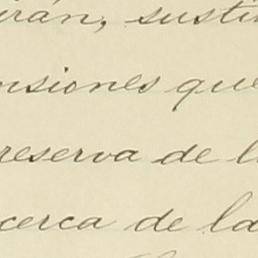 irán, susti
nsiones que
reserva de l
cerca de la